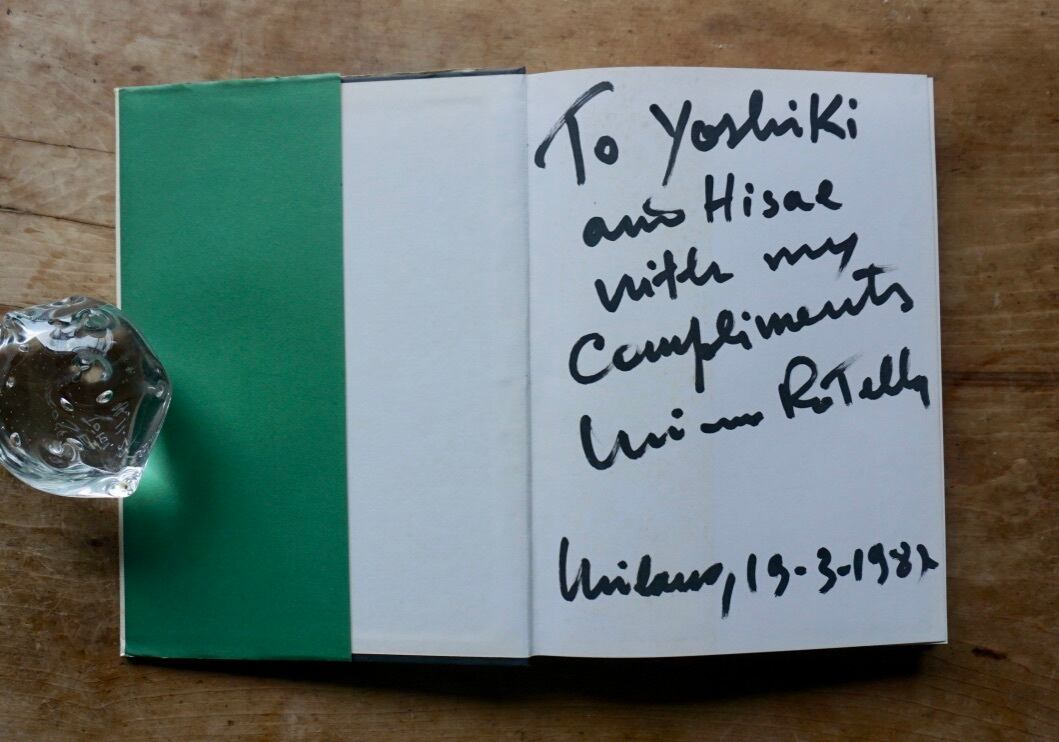 To Yoshiki
and Hisae
with my
Compliments
Mimmo Rotella
Milano, 19-3-1982